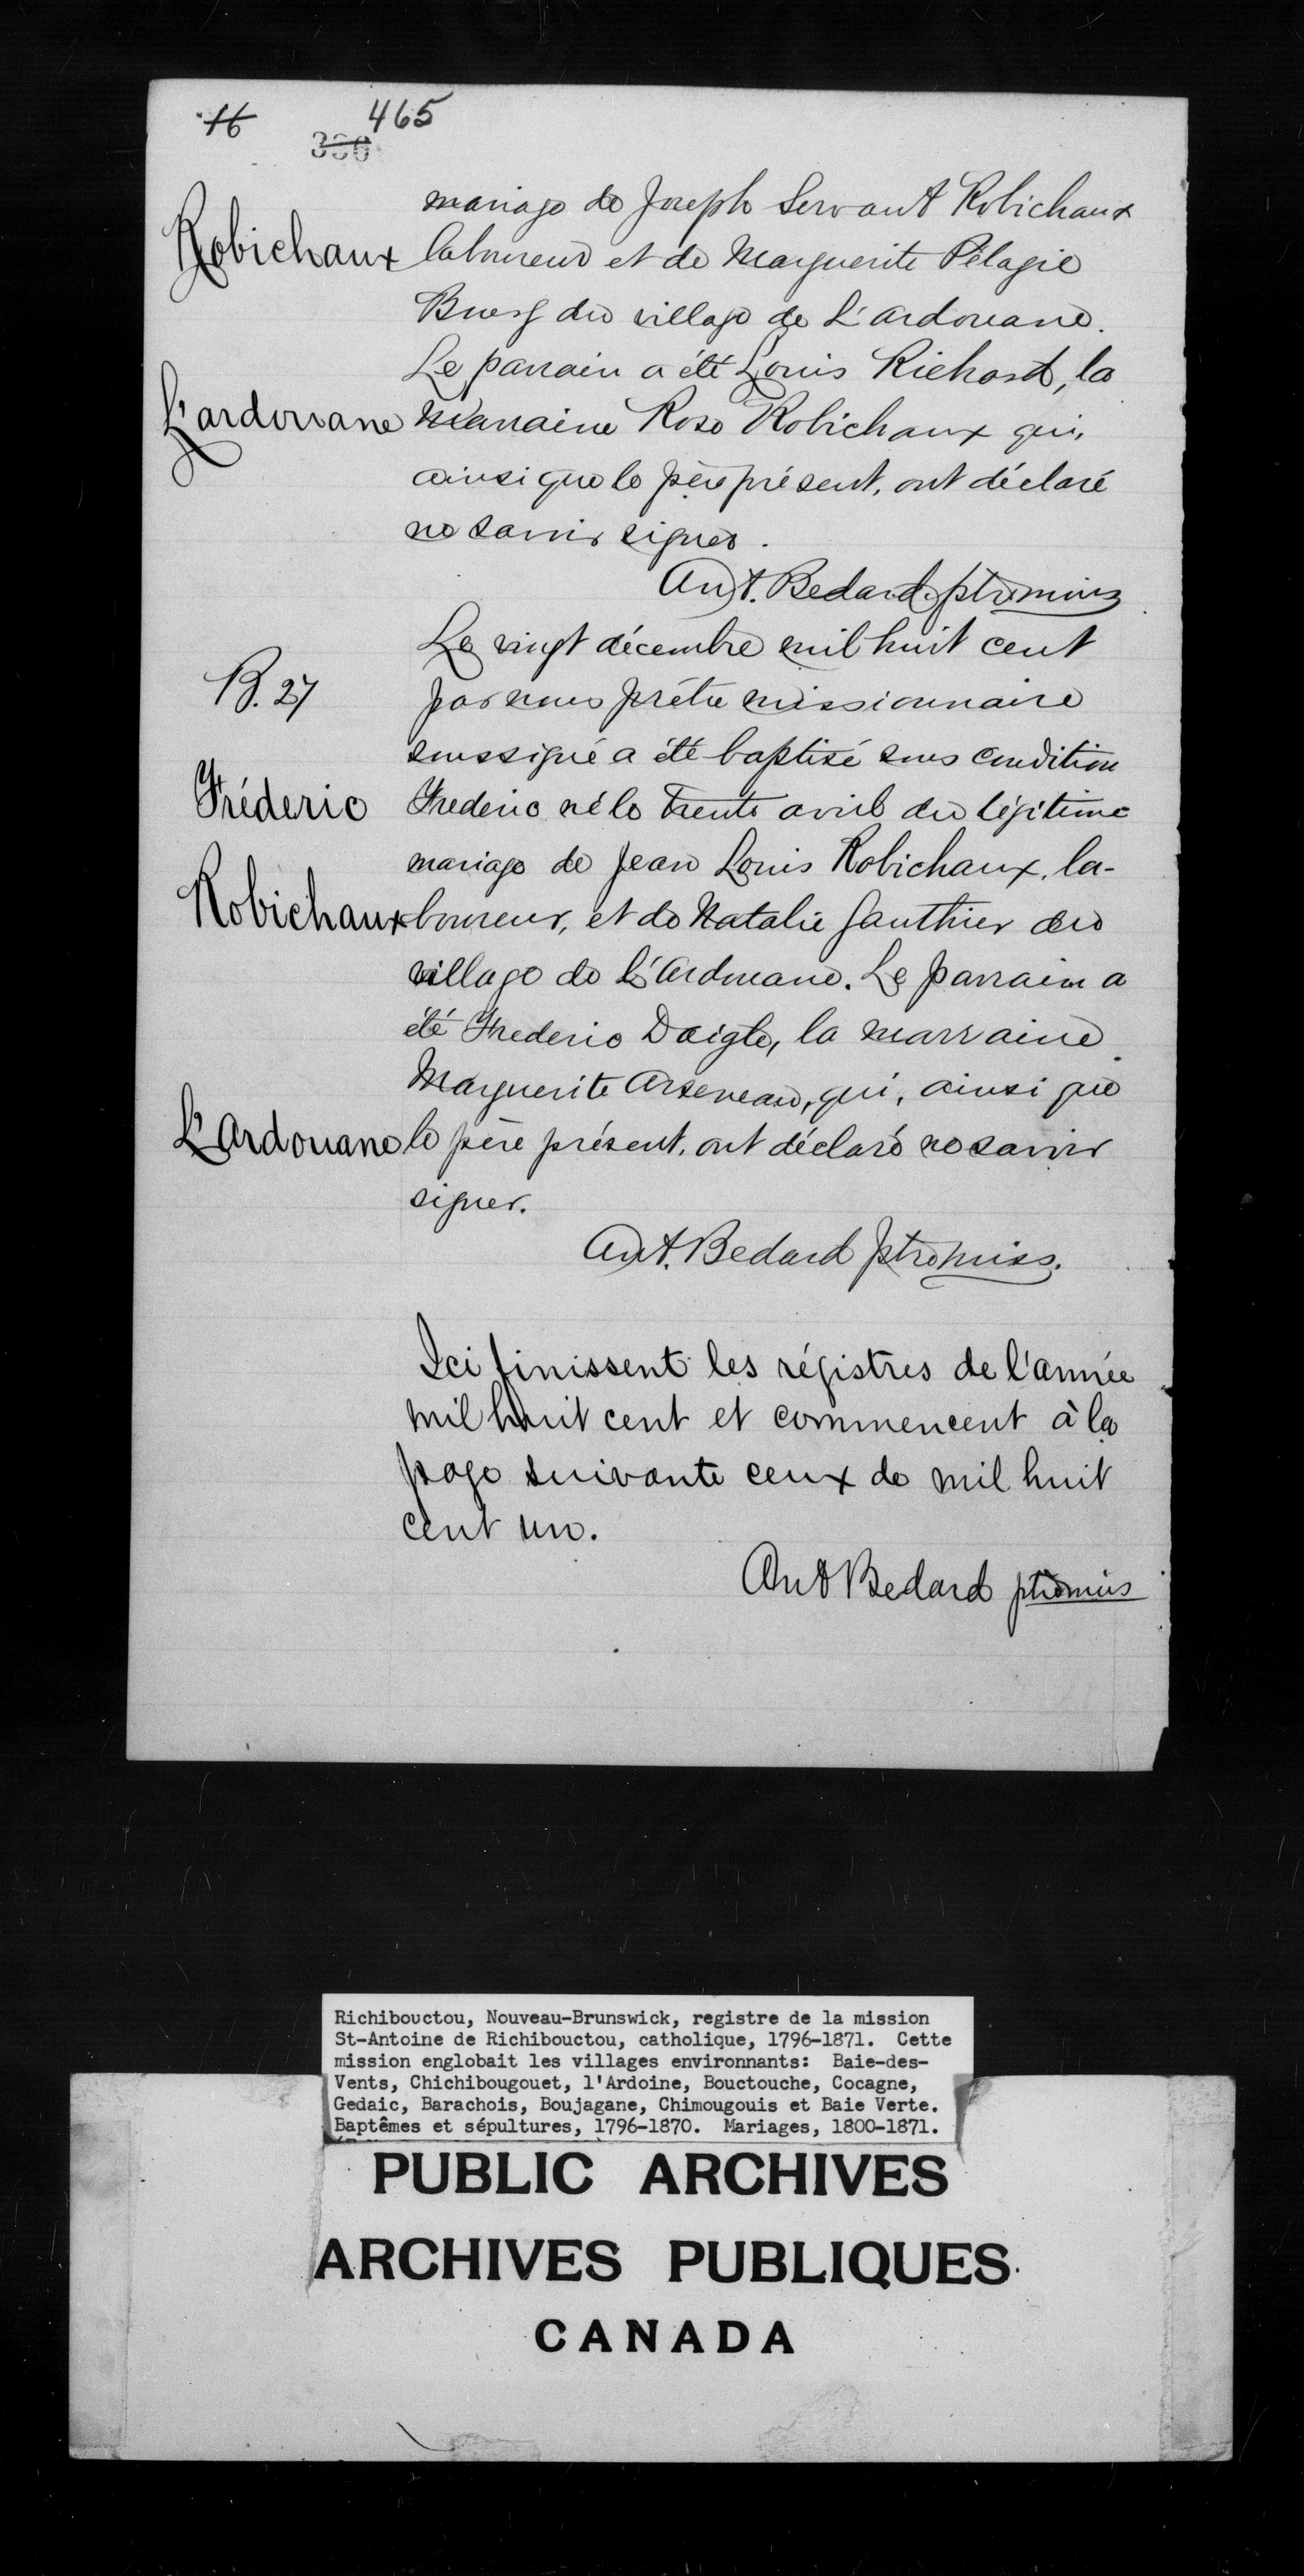 16
465
330
mariage de Joseph Servant Robichaux
Robichaux
laboureur et de Marguerite Pélagie
Bourg du village de L'ardouane.
Le parrain a été Louis Richard, la
L'ardouane
marraine Rose Robichaux qui,
ainsi que le père présent, ont déclaré
ne savoir signer.
Ant. Bedard ptre miss
Le vingt décembre mil huit cent
B. 27
par nous prêtre missionnaire
soussigné a été baptisé sous condition
Fréderic
Frederic né le trente avril du légitime
mariage de Jean Louis Robichaux, la-
Robichaux
boureur, et de Natalie Gauthier du
village de L'Ardouane. Le parrain a
été Frederic Daigle, la marraine
Marguerite Arseneau, qui, ainsi que
L'Ardouane
le père présent, ont déclaré ne savoir
signer.
Ant. Bedard ptre miss.
Ici finissent les régistres de l'année
mil huit cent et commencent à la
page suivante ceux de mil huit
cent un.
Ant Bedard ptre mis
Richibouctou, Nouveau-Brunswick, registre de la mission
St-Antoine de Richibouctou, catholique, 1796-1871. Cette
mission englobait les villages environnants: Baie-des-
Vents, Chichibougouet, l'Ardoine, Bouctouche, Cocagne,
Gedaic, Barachois, Boujagane, Chimougouis et Baie Verte.
Baptêmes et sépultures, 1796-1870. Mariages, 1800-1871.
PUBLIC ARCHIVES
ARCHIVES PUBLIQUES
CANADA